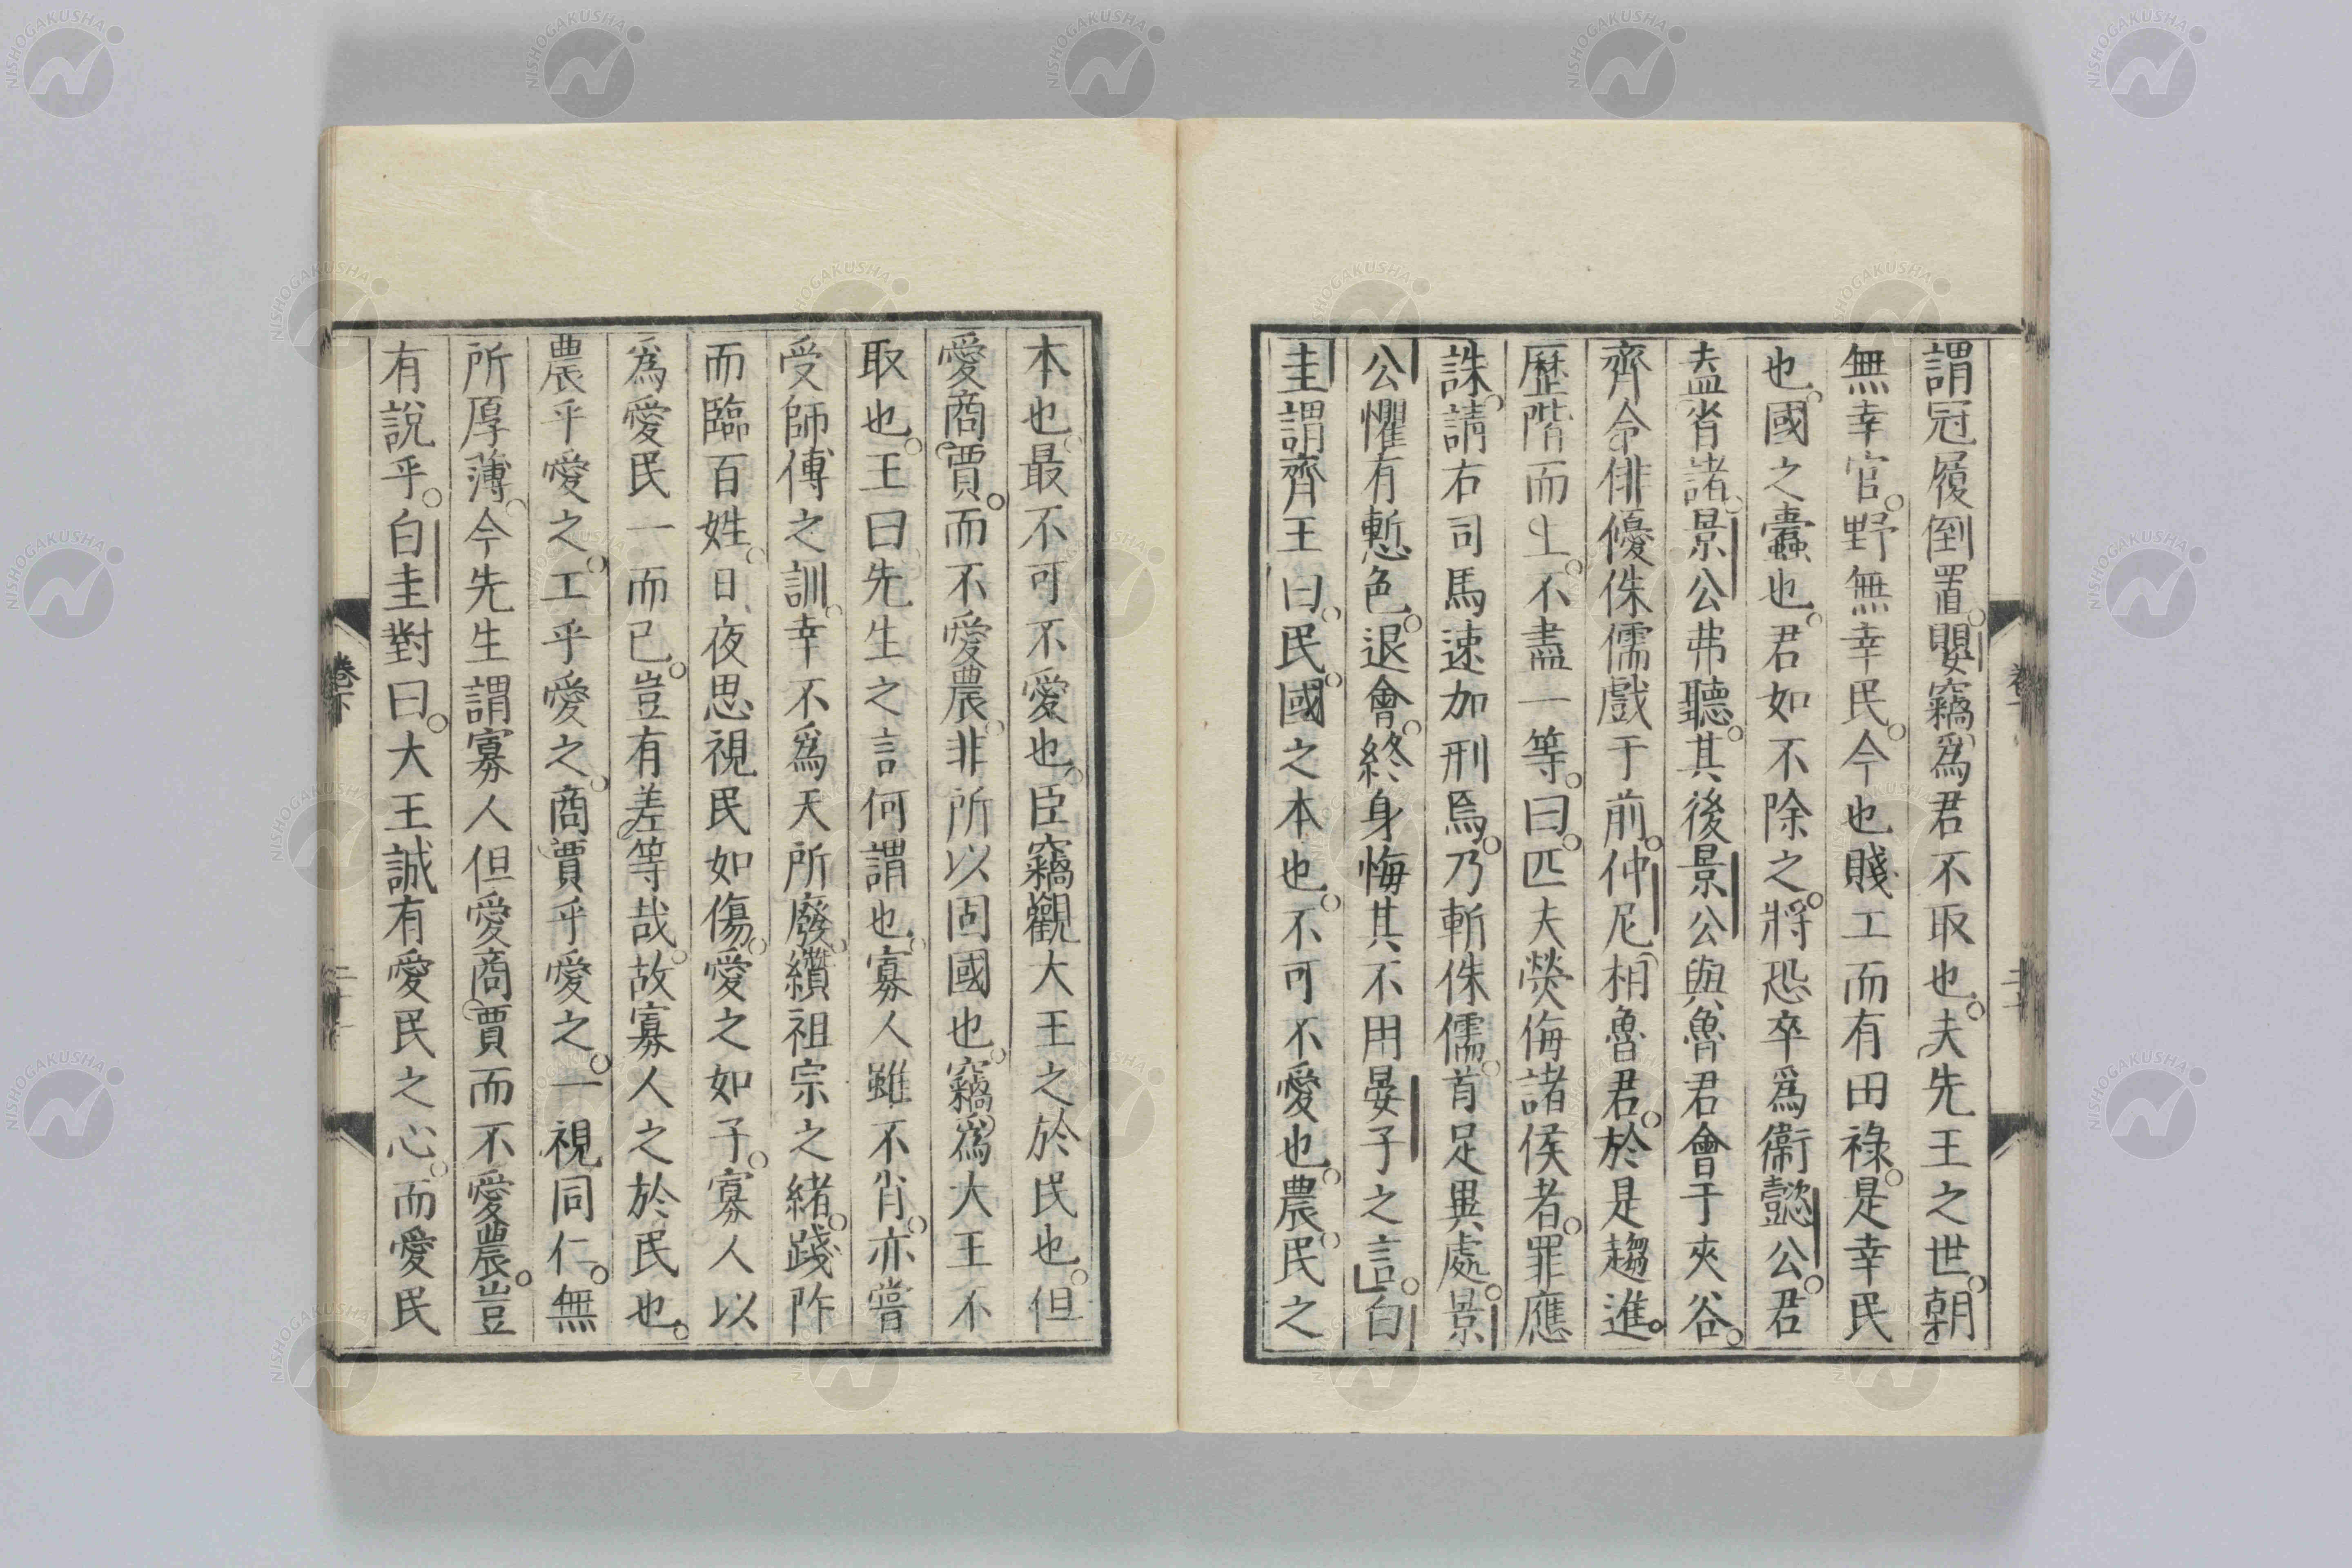 謂冠履倒置。嬰竊爲君不取也。夫先王之世。朝
無幸官。野無幸民。今也賤工而有田祿。是幸民
也。國之蠹也。君如不除之。將恐卒爲衞懿公。君
盍省諸。景公弗聽。其後景公與魯君會于夾谷。
齊令俳優侏儒戲于前。仲尼相魯君。於是趨進。
歷階而上。不盡一等。曰。匹夫熒侮諸侯者。罪應
誅。請右司馬速加刑焉。乃斬侏儒。首足異處。景
公懼有慙色。退會。終身悔其不用晏子之言。」白
圭謂齊王曰。民。國之本也。不可不愛也。農。民之
本也。最不可不愛也。臣竊觀大王之於民也。但
愛商賈。而不愛農。非所以固國也。竊爲大王不
取也。王曰。先生之言何謂也。寡人雖不肖。亦嘗
受師傅之訓。幸不爲天所廢。纘祖宗之緒。踐阼
而臨百姓。日夜思視民如傷。愛之如子。寡人以
爲愛民一而已。豈有差等哉。故寡人之於民也。
農乎愛之。工乎愛之。商賈乎愛之。一視同仁。無
所厚薄。今先生謂寡人但愛商賈而不愛農。豈
有說乎。白圭對曰。大王誠有愛民之心。而愛民
卷下
NISHOGAKUSHA